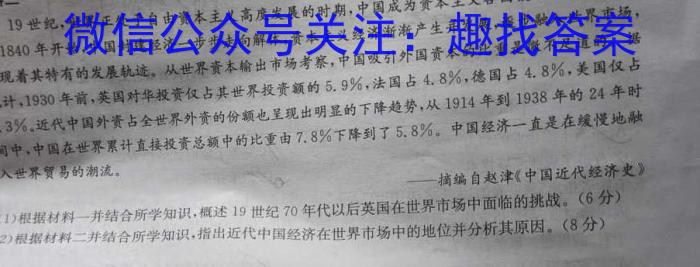 19 世纪,
资本主
高度发展的时期,中国成为资本主
微信公众号关注：趣找答案
1840 年开
现着其特有的发展轨迹。从世界资本输出市场考察,中国吸引外国资本的比重
计,1930年前,英国对华投资仅占其世界投资额的 5.9%,法国占 4.8%,德国占 4.8%,美国仅占
.3%。近代中国外资占全世界外资的份额也呈现出明显的下降趋势,从 1914 年到 1938 年的 24 年时
间中,中国在世界累计直接投资总额中的比重由 7.8%下降到了 5.8%。中国经济一直是在缓慢地融
入世界贸易的潮流。
——摘编自赵津《中国近代经济史》
(1)根据材料一并结合所学知识,概述 19 世纪 70 年代以后英国在世界市场中面临的挑战。(6 分)
2)根据材料二并结合所学知识,指出近代中国经济在世界市场中的地位并分析其原因。(8 分)